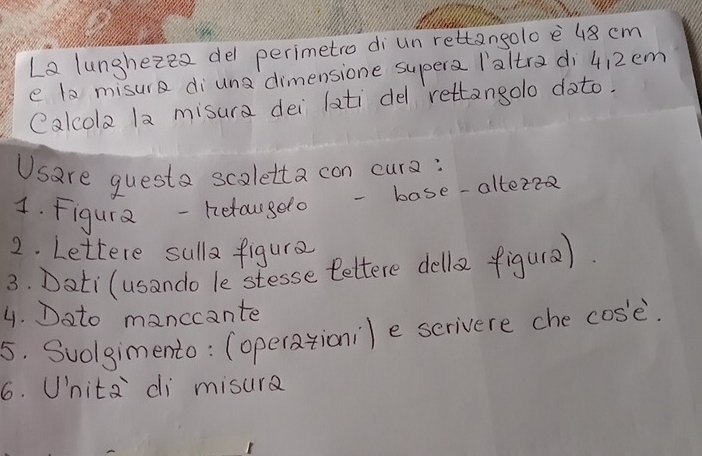 La lunghezza del perimetro di un rettangolo è 48 cm
e la misura di una dimensione supera l'altra di 4,2 cm
Calcola la misura dei lati del rettangolo dato.
Usare questa scaletta con cura:
1. Figura - retangolo - base - altezza
2. Lettere sulla figura
3. Dati (usando le stesse lettere della figura).
4. Dato manccante
5. Svolgimento: (operazioni) e scrivere che cos'è.
6. U'nità di misura